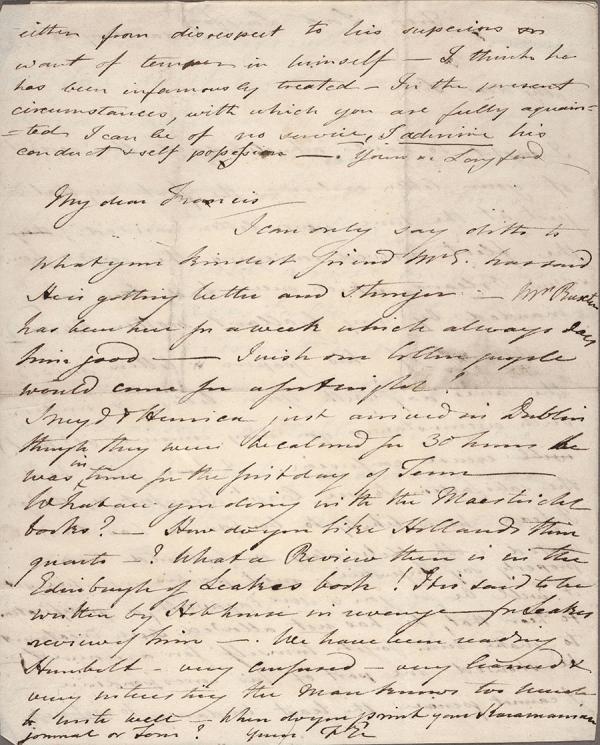 either from disrespect to his superiors or
want of temper in himself – I think he
has been infamously treated – In the present
circumstances, with which you are fully aquain-
=ted I can be of no service, I admire his
conduct & self possession — . Yours
My dear Francis
I can only say ditto to
what your kindest friend Mr E. has said
He is getting better and stronger – Mr
has been here for a week which always does
him good — I wish one other people
would come for a fortnight!
Sneyd & Henrica just arrived in Dublin
though they were becalmed for 30 hours he
was in time for the first day of Term —
What are you doing with the Maestricht
books? – How do you like Hollands thin
quarto – ? What a Review there is in the
Edinburgh of Leakes book! It is said to be
written by Hobhouse in revenge for Leakes
review of him — . We have been reading
Humbolt – very confused – very learned &
very interesting the man knows too much
to write well – When do you print your Karamanian
journal or Tour? Yours